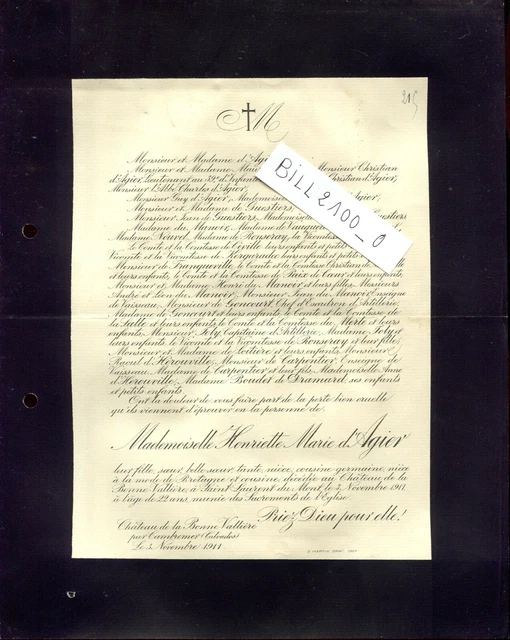 215
M
Monsieur et Madame d'Agier, Monsieur Christian
Monsieur et Madame
d'Agier, Lieutenant au 39e d'Infanterie Christian d'Agier,
Monsieur l'Abbé Charles d'Agier,
Monsieur Guy d'Agier, Mademoiselle d'Agier,
Monsieur et Madame de Guestiers,
Monsieur Jean de Guestiers, Mademoiselle Guestiers
Madame du Manoir, Madame de
Madame Nourel, Madame de Ronseray, la Vicomtesse
Le Comte et la Comtesse de Cerille leurs enfants et petits
Vicomte et la Vicomtesse de Kergariou leurs enfants et petits
Monsieur de Franqueville, le Comte et la Comtesse Christian de
et leurs enfants, le Comte et la Comtesse de Paix de Cœur et leurs enfants,
Monsieur et Madame Henri du Manoir et leurs filles, Messieurs
André et Léon du Manoir, Monsieur Jean du Manoir Enseigne
de Vaisseau, Monsieur de Goncourt Chef d'Escadron d'Artillerie,
Madame de Goncourt et leurs enfants, le Comte et la Comtesse de
la Salle et leurs enfants, le Comte et la Comtesse du Merle et leurs
enfants, Monsieur Hély, Capitaine d'Artillerie, Madame Hély et
leurs enfants, le Vicomte et la Vicomtesse de Ronseray et leur fille,
Monsieur et Madame de Loëture et leurs enfants, Monsieur
Raoul d'Hérouville, Monsieur de Carpentier, Enseigne de
Vaisseau, Madame de Carpentier et leur fils, Mademoiselle Anne
d'Hérouville, Madame Boudet de Dramard, ses enfants
et petits enfants,
Ont la douleur de vous faire part de la perte bien cruelle
qu'ils viennent d'éprouver en la personne de
Mademoiselle Henriette Marie d'Agier
leur fille, sœur, belle sœur, tante, nièce, cousine germaine, nièce
à la mode de Bretagne et cousine, décédée au Château de la
Bonne Vallière, à Saint Laurent du Mont, le 3 Novembre 1911,
à l'âge de 22 ans, munie des Sacrements de l'Église.
Priez Dieu pour elle!
Château de la Bonne Vallière
par Cambremer (Calvados)
Le 5 Novembre 1911
BILL2100_0